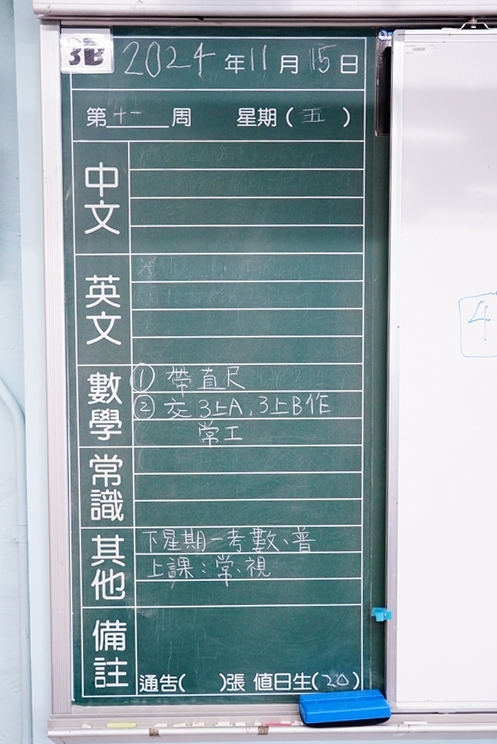 3B
2024年11月15日
第十一周 星期(五)
中文
英文
數學
① 帶直尺
② 交3上A、3上B作
常工
常識
其他
下星期一考數、普
上課:常、視
備註
通告( )張 值日生(20)
4